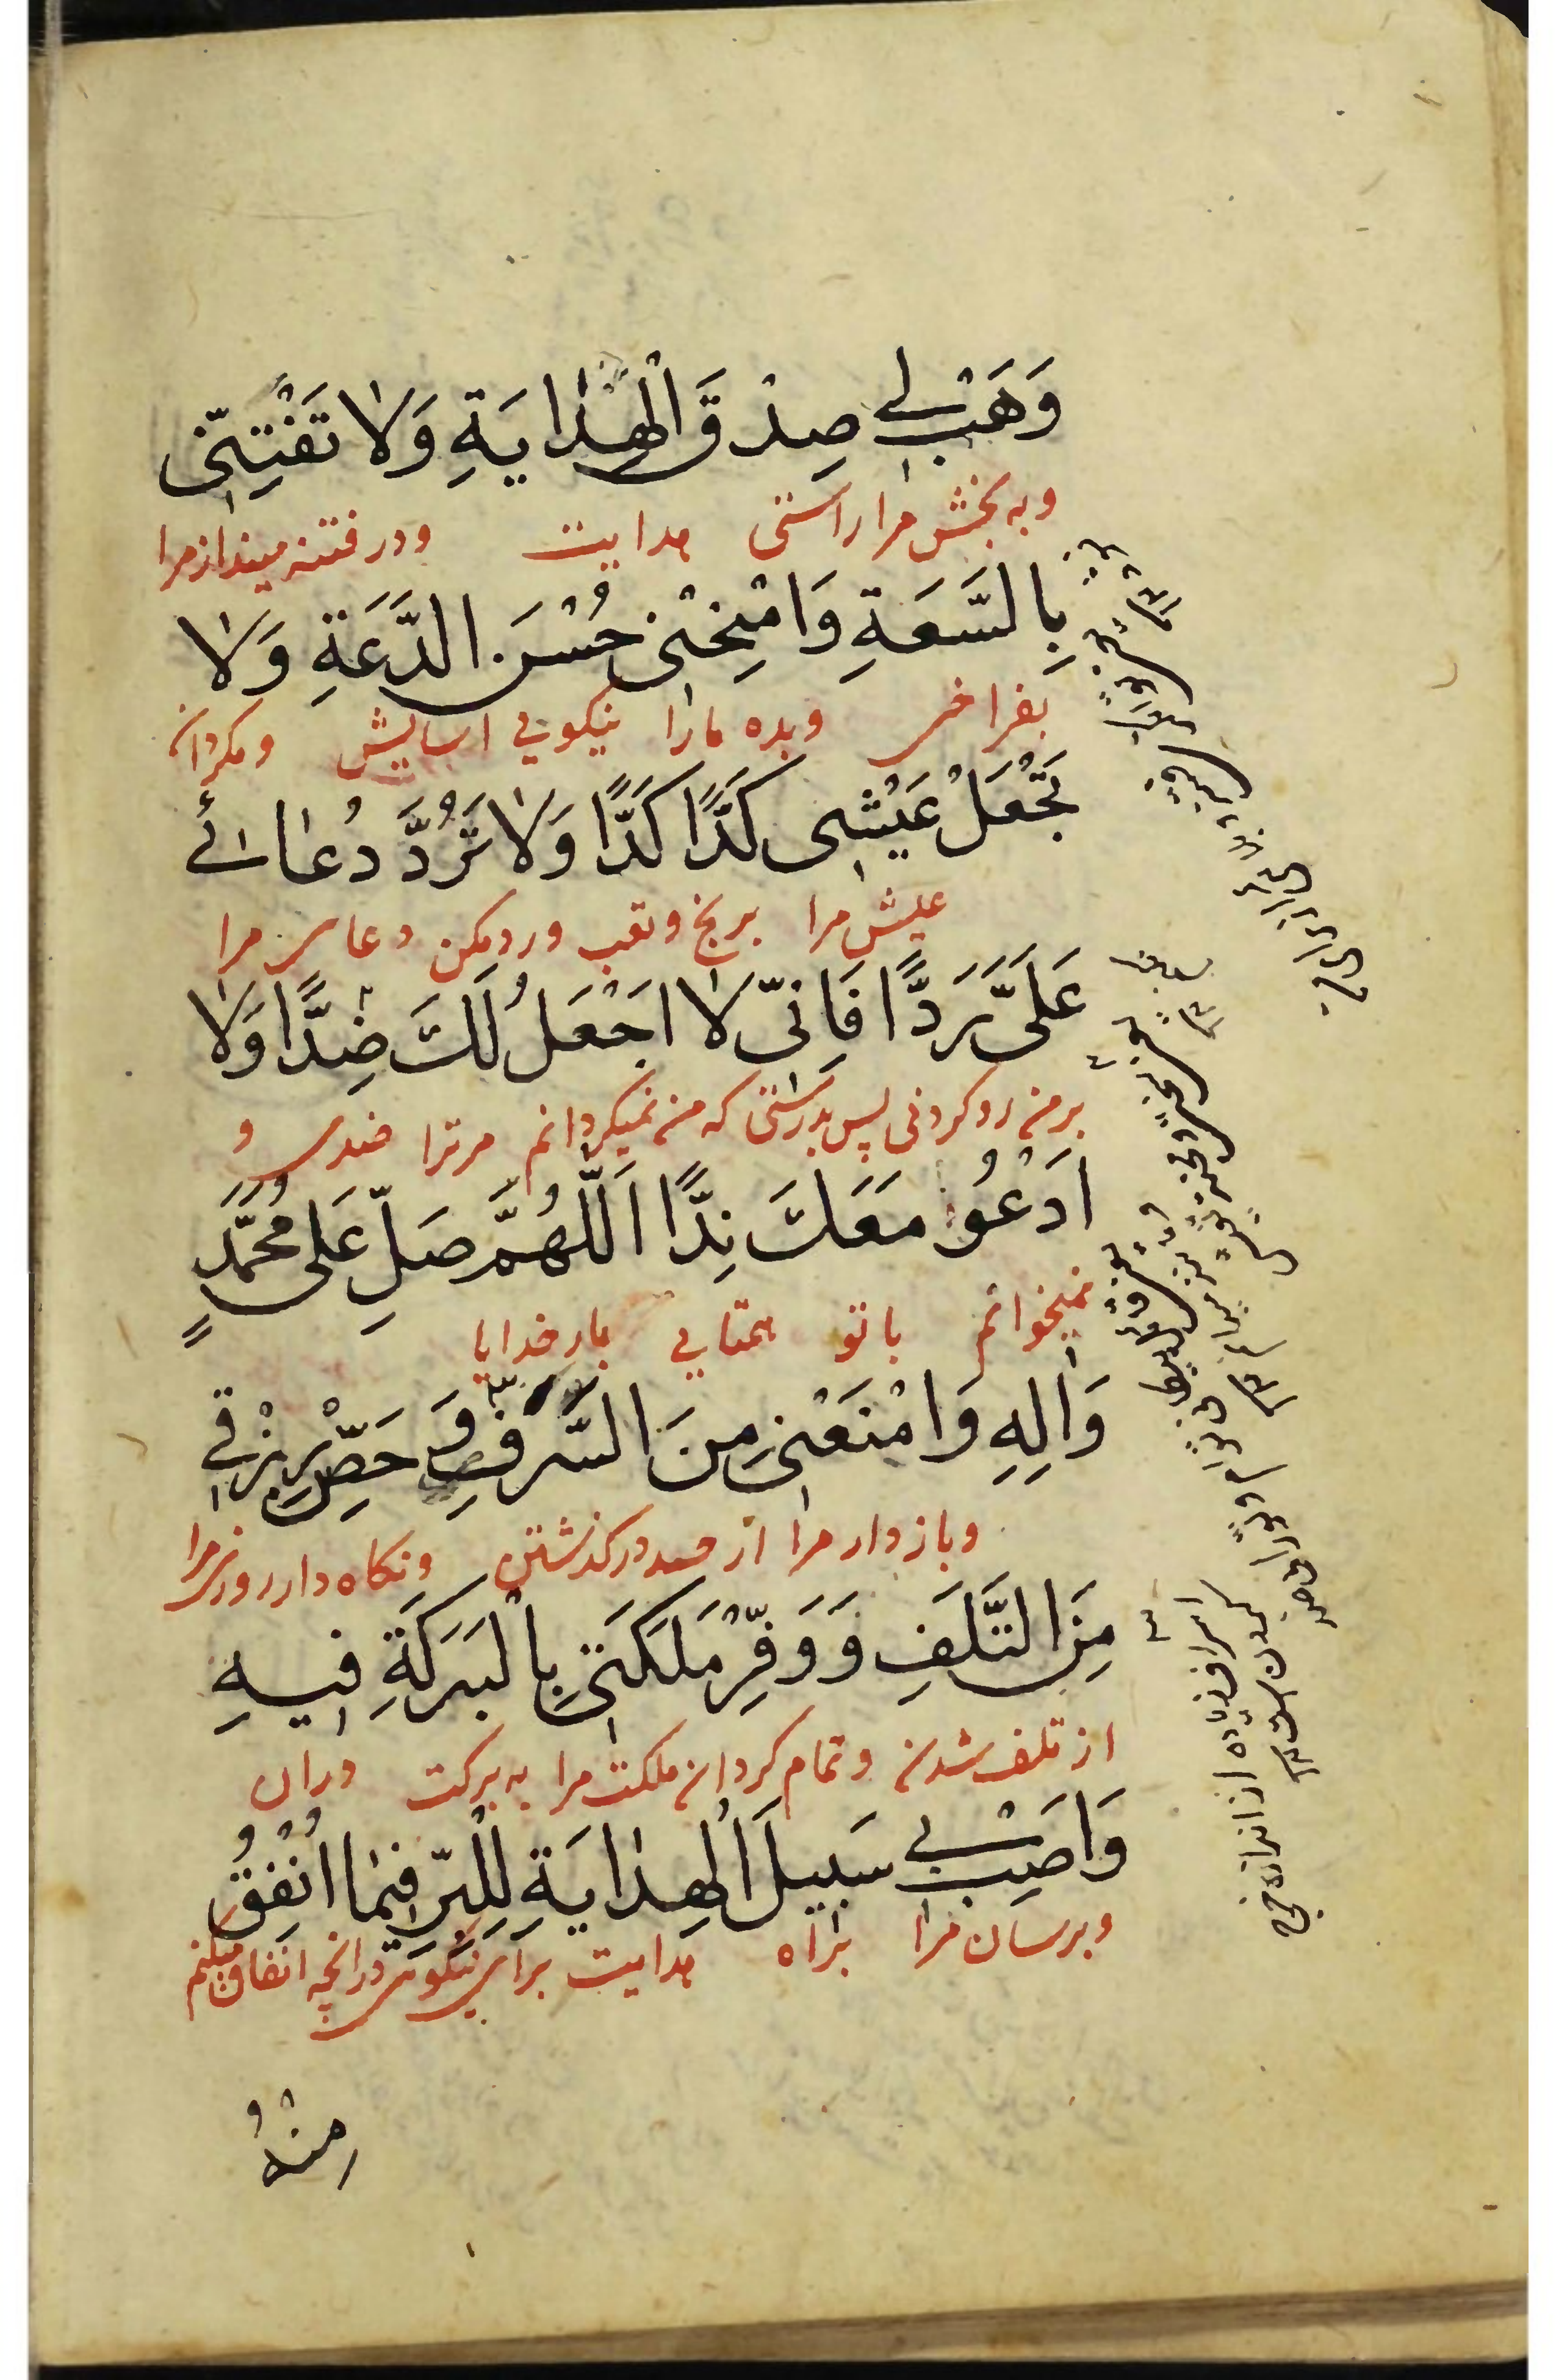 وَهَبْ لِي صِدْقَ الْهِدَايَةِ وَلَا تَفْتِنِّي
وبه بخش مرا راستی هدایت ودر فتنه مینداز مرا
بِالسَّعَةِ وَامْنِحْنِي حُسْنَ الدَّعَةِ وَلَا
بفراخی وبده مارا نیکویی اسایش ومکردان
تَجْعَلْ عَيْشِي كَدًّا كَدًّا وَلَا تَرُدَّ دُعَائِي
عیش مرا برنج وتعب ورد مکن دعای مرا
عَلَيَّ رَدًّا فَإِنِّي لَا اَجْعَلُ لَكَ ضِدًّا وَلَا
بر من رد کردنی پس بدرستی که من نمیکردانم مر ترا ضدی و
اَدْعُو مَعَكَ نِدًّا اَللّٰهُمَّ صَلِّ عَلٰى مُحَمَّدٍ
نمیخوانم باتو همتایی بار خدایا
وَاٰلِهِ وَامْنَعْنِي مِنَ السَّرَفِ وَحَصِّنْ رِزْقِي
وباز دار مرا از حد در کذشتن ونکاه دار روزی مرا
مِنَ التَّلَفِ وَوَفِّرْ مَلَكَتِي بِالْبَرَكَةِ فِيهِ
از تلف شدن وتمام کردان ملکت مرا به برکت دران
وَاَصِبْ بِي سَبِيلَ الْهِدَايَةِ لِلْبِرِّ فِيمَا اُنْفِقُ
وبرسان مرا براه هدایت برای نیکوئی درانچه انفاق میکنم
مِنْهُ
اسراف زیاده از اندازه خرج
کردن است ١٢